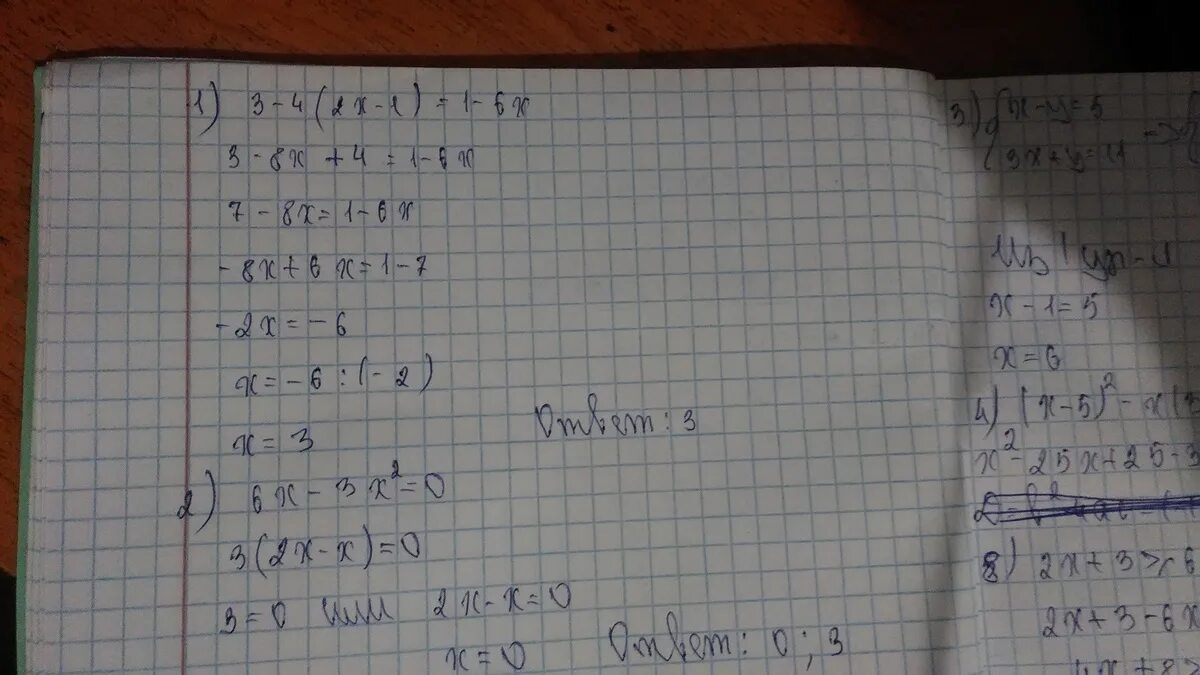 1) 3 - 4(2x - 1) = 1 - 6x
3 - 8x + 4 = 1 - 6x
7 - 8x = 1 - 6x
- 8x + 6x = 1 - 7
- 2x = - 6
x = - 6 : (- 2)
x = 3
Ответ: 3
2) 6x - 3x² = 0
3(2x - x) = 0
3 = 0 или 2x - x = 0
x = 0
Ответ: 0; 3
3) x - y = 5
Из 1 ур-
x - 1 = 5
x = 6
4) (x - 5)² - x(
x² - 25x + 25 - 3
8) 2x + 3 >
2x + 3 - 6x